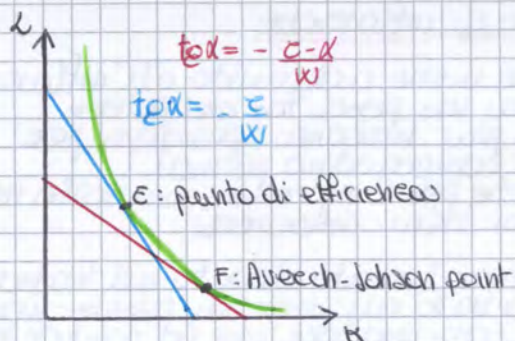 L
tgα = - r-α/w
tgα = - r/w
E: punto di efficienza
F: Aveech-Johson point
K